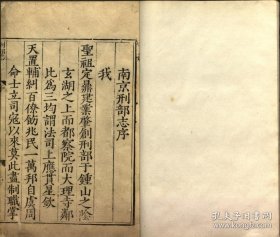 南京刑部志序
我
聖祖定鼎建業肇創刑部于鍾山之陰
玄湖之上而都察院而大理寺鄰
比爲三均謂法司上應貫星欽
天置輔糾百僚飭兆民一萬邦自虞周
命士立司寇以來莫此盡制職掌
孔夫子旧书网